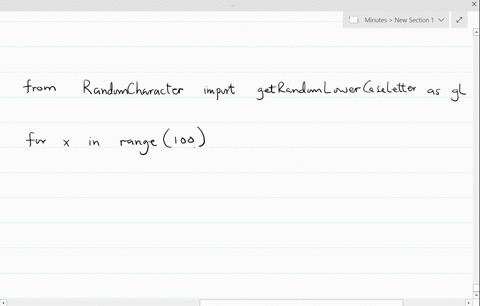 Minutes > New Section 1
from RandomCharacter import getRandomLowerCaseLetter as gL
for x in range (100)